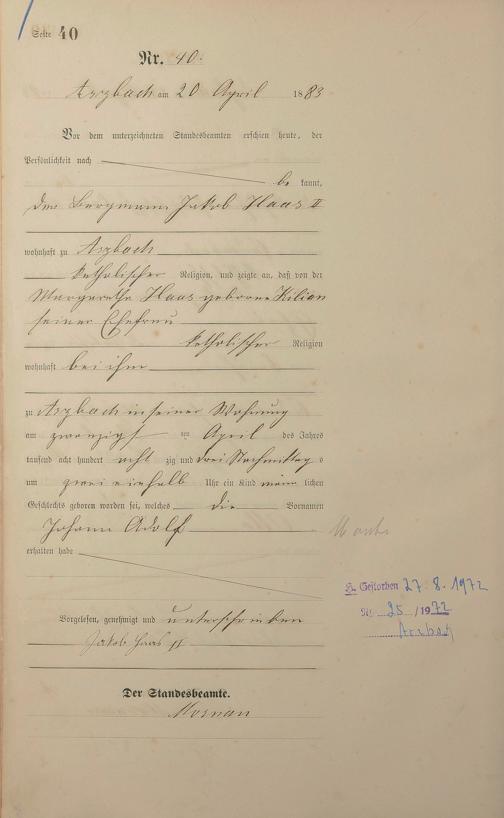 Seite 40
Nr. 40.
Arzbach am 20 April 1883
Vor dem unterzeichneten Standesbeamten erschien heute, der
Persönlichkeit nach
be kannt,
der Bergmann Jakob Haas II
wohnhaft zu Arzbach
katholischer Religion, und zeigte an, daß von der
Margarethe Haas geborne Kilian
seiner Ehefrau
katholischer Religion
wohnhaft bei ihm
zu Arzbach in seiner Wohnung
am zwanzigst ten April des Jahres
tausend acht hundert acht zig und drei Nachmittag s
um zwei einhalb Uhr ein Kind männ lichen
Geschlechts geboren worden sei, welches die Vornamen
Johann Adolf
erhalten habe
H. Gestorben 27.8.1972
Nr. 25 /1972
Arzbach
Vorgelesen, genehmigt und unterschrieben
Jakob Haas II
Der Standesbeamte.